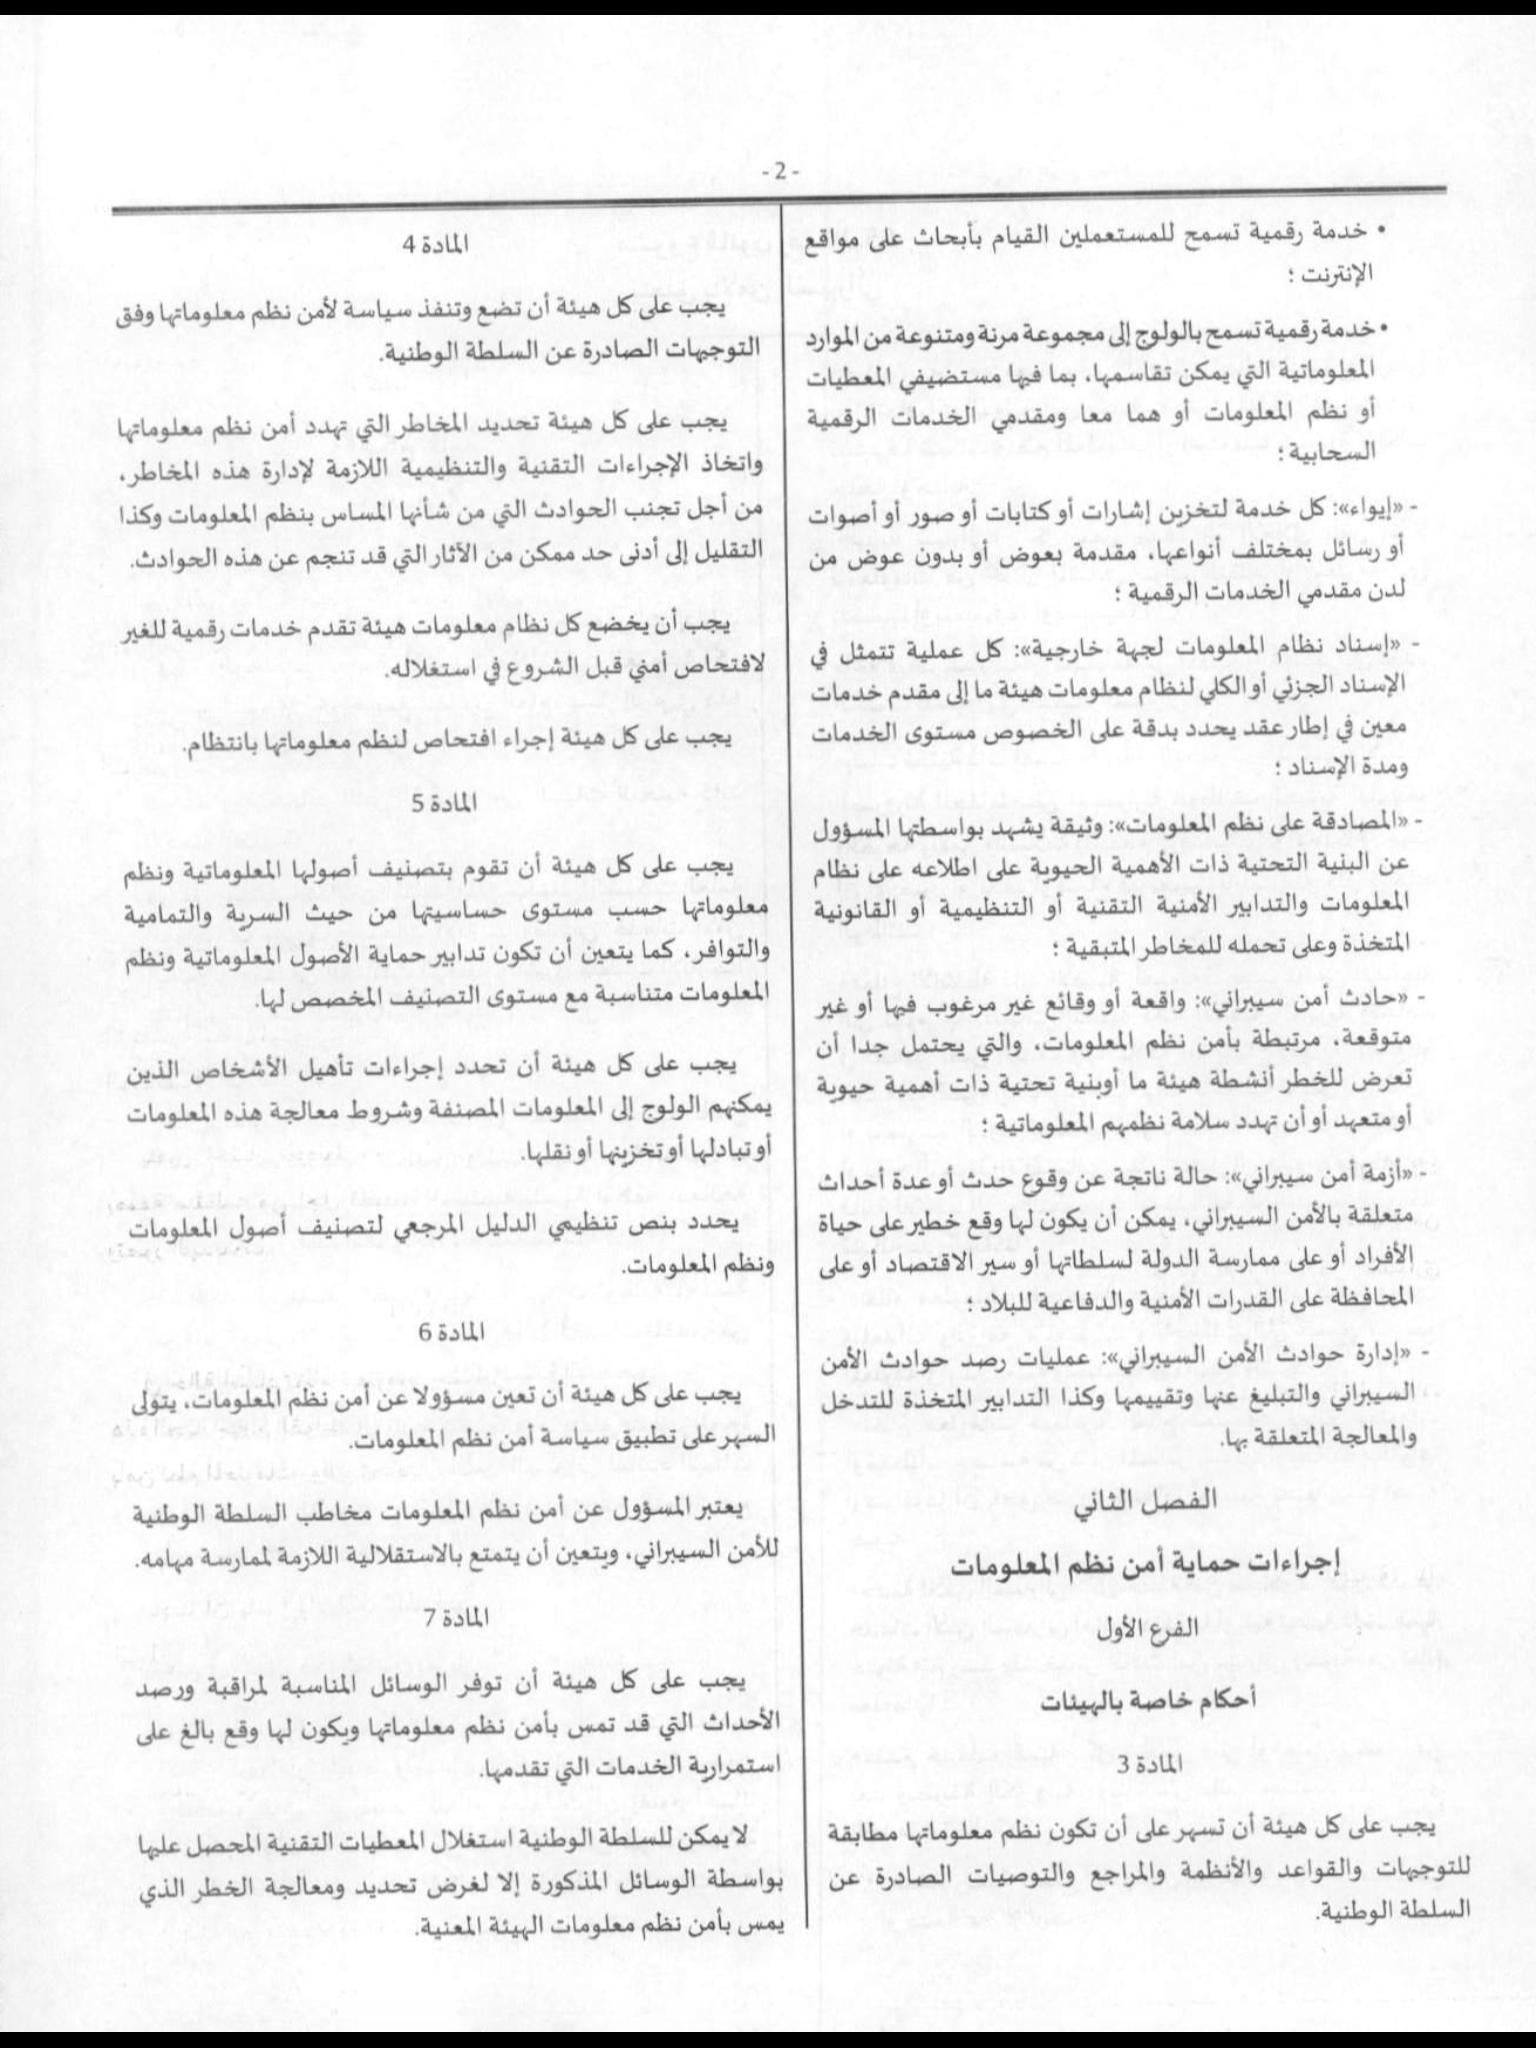 - 2 -
• خدمة رقمية تسمح للمستعملين القيام بأبحاث على مواقع
الإنترنت ؛
• خدمة رقمية تسمح بالولوج إلى مجموعة مرنة ومتنوعة من الموارد
المعلوماتية التي يمكن تقاسمها، بما فيها مستضيفي المعطيات
أو نظم المعلومات أو هما معا ومقدمي الخدمات الرقمية
السحابية ؛
- «إيواء»: كل خدمة لتخزين إشارات أو كتابات أو صور أو أصوات
أو رسائل بمختلف أنواعها، مقدمة بعوض أو بدون عوض من
لدن مقدمي الخدمات الرقمية ؛
- «إسناد نظام المعلومات لجهة خارجية»: كل عملية تتمثل في
الإسناد الجزئي أو الكلي لنظام معلومات هيئة ما إلى مقدم خدمات
معين في إطار عقد يحدد بدقة على الخصوص مستوى الخدمات
ومدة الإسناد ؛
- «المصادقة على نظم المعلومات»: وثيقة يشهد بواسطتها المسؤول
عن البنية التحتية ذات الأهمية الحيوية على اطلاعه على نظام
المعلومات والتدابير الأمنية التقنية أو التنظيمية أو القانونية
المتخذة وعلى تحمله للمخاطر المتبقية ؛
- «حادث أمن سيبراني»: واقعة أو وقائع غير مرغوب فيها أو غير
متوقعة، مرتبطة بأمن نظم المعلومات، والتي يحتمل جدا أن
تعرض للخطر أنشطة هيئة ما أوبنية تحتية ذات أهمية حيوية
أو متعهد أو أن تهدد سلامة نظمهم المعلوماتية ؛
- «أزمة أمن سيبراني»: حالة ناتجة عن وقوع حدث أو عدة أحداث
متعلقة بالأمن السيبراني، يمكن أن يكون لها وقع خطير على حياة
الأفراد أو على ممارسة الدولة لسلطاتها أو سير الاقتصاد أو على
المحافظة على القدرات الأمنية والدفاعية للبلاد ؛
- «إدارة حوادث الأمن السيبراني»: عمليات رصد حوادث الأمن
السيبراني والتبليغ عنها وتقييمها وكذا التدابير المتخذة للتدخل
والمعالجة المتعلقة بها.
الفصل الثاني
إجراءات حماية أمن نظم المعلومات
الفرع الأول
أحكام خاصة بالهيئات
المادة 3
يجب على كل هيئة أن تسهر على أن تكون نظم معلوماتها مطابقة
للتوجيهات والقواعد والأنظمة والمراجع والتوصيات الصادرة عن
السلطة الوطنية.
المادة 4
يجب على كل هيئة أن تضع وتنفذ سياسة لأمن نظم معلوماتها وفق
التوجيهات الصادرة عن السلطة الوطنية.
يجب على كل هيئة تحديد المخاطر التي تهدد أمن نظم معلوماتها
واتخاذ الإجراءات التقنية والتنظيمية اللازمة لإدارة هذه المخاطر،
من أجل تجنب الحوادث التي من شأنها المساس بنظم المعلومات وكذا
التقليل إلى أدنى حد ممكن من الآثار التي قد تنجم عن هذه الحوادث.
يجب أن يخضع كل نظام معلومات هيئة تقدم خدمات رقمية للغير
لافتحاص أمني قبل الشروع في استغلاله.
يجب على كل هيئة إجراء افتحاص لنظم معلوماتها بانتظام.
المادة 5
يجب على كل هيئة أن تقوم بتصنيف أصولها المعلوماتية ونظم
معلوماتها حسب مستوى حساسيتها من حيث السرية والتمامية
والتوافر، كما يتعين أن تكون تدابير حماية الأصول المعلوماتية ونظم
المعلومات متناسبة مع مستوى التصنيف المخصص لها.
يجب على كل هيئة أن تحدد إجراءات تأهيل الأشخاص الذين
يمكنهم الولوج إلى المعلومات المصنفة وشروط معالجة هذه المعلومات
أو تبادلها أو تخزينها أو نقلها.
يحدد بنص تنظيمي الدليل المرجعي لتصنيف أصول المعلومات
ونظم المعلومات.
المادة 6
يجب على كل هيئة أن تعين مسؤولا عن أمن نظم المعلومات، يتولى
السهر على تطبيق سياسة أمن نظم المعلومات.
يعتبر المسؤول عن أمن نظم المعلومات مخاطب السلطة الوطنية
للأمن السيبراني، ويتعين أن يتمتع بالاستقلالية اللازمة لممارسة مهامه.
المادة 7
يجب على كل هيئة أن توفر الوسائل المناسبة لمراقبة ورصد
الأحداث التي قد تمس بأمن نظم معلوماتها ويكون لها وقع بالغ على
استمرارية الخدمات التي تقدمها.
لا يمكن للسلطة الوطنية استغلال المعطيات التقنية المحصل عليها
بواسطة الوسائل المذكورة إلا لغرض تحديد ومعالجة الخطر الذي
يمس بأمن نظم معلومات الهيئة المعنية.